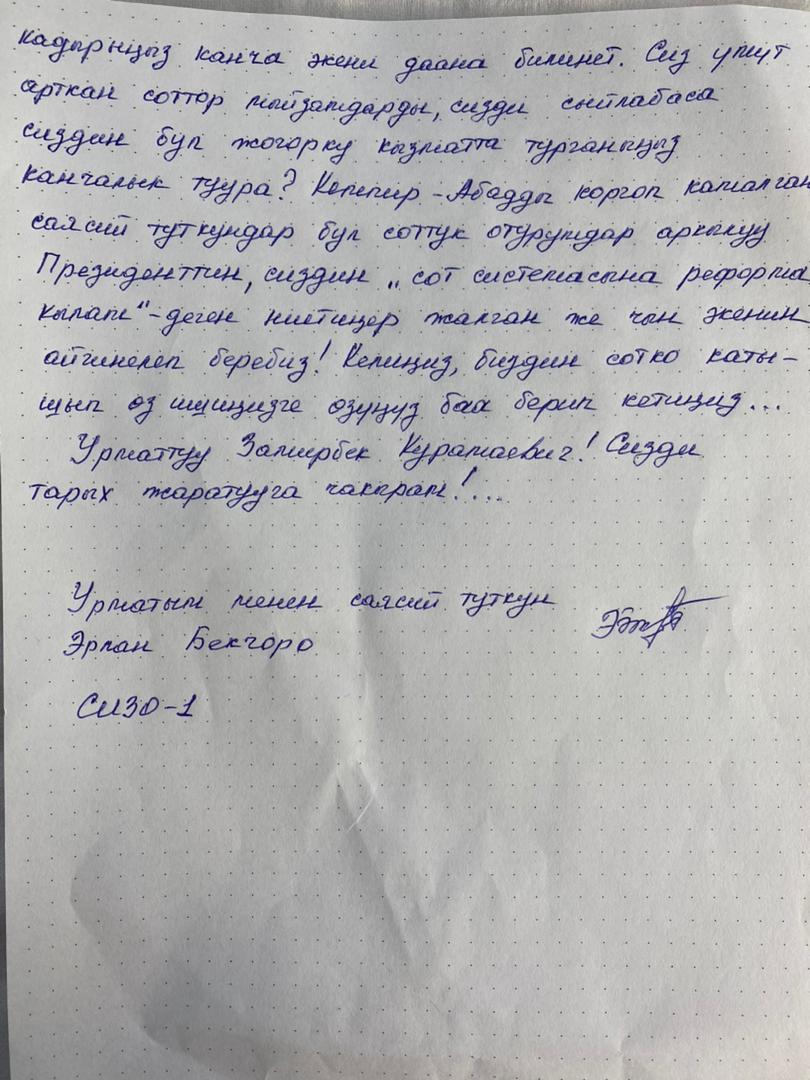 кадырыңыз канча экени даана билинет. Сиз үмүт
арткан соттор мыйзамдарды, сизди сыйлабаса
сиздин бул жогорку кызматта турганыңыз
канчалык туура? Кемпир-Абадды коргоп камалган
саясий туткундар бул соттук отурумдар аркылуу
Президенттин, сиздин „сот системасына реформа
кылам"-деген ниетиңер жалган же чын экенин
айгинелеп беребиз! Келиңиз, биздин сотко каты-
шып өз ишиңизге өзүңүз баа берип кетиңиз...
Урматтуу Замирбек Курамаевич! Сизди
тарых жаратууга чакырам!...
Урматым менен саясий туткун
Эрлан Бекчоро
СИЗО-1